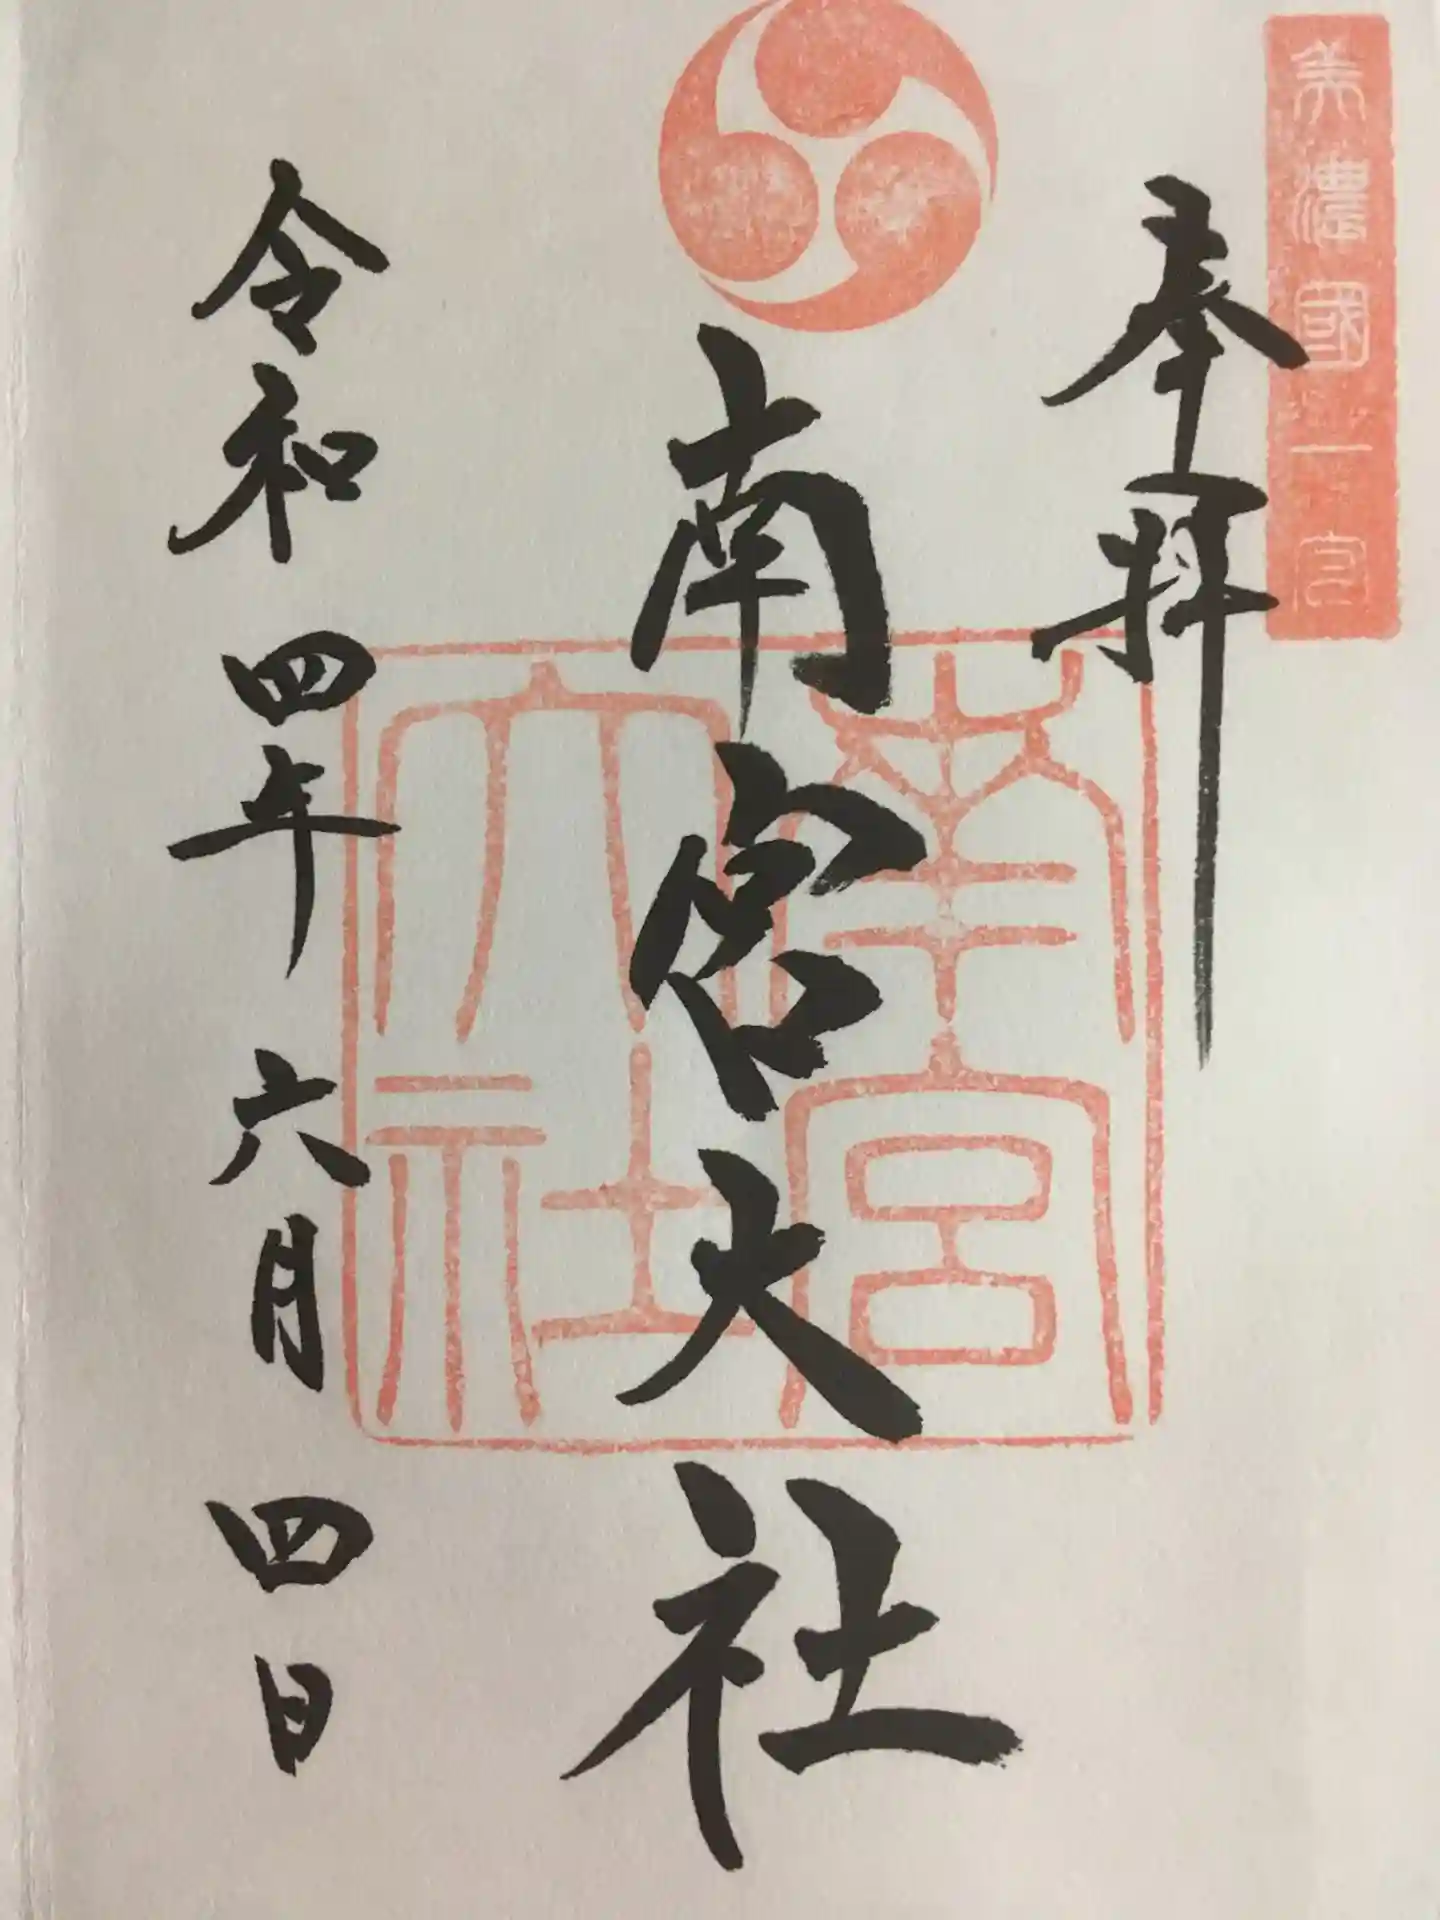 美濃國一宮
奉拝
南宮大社
南宮大社
令和四年六月四日